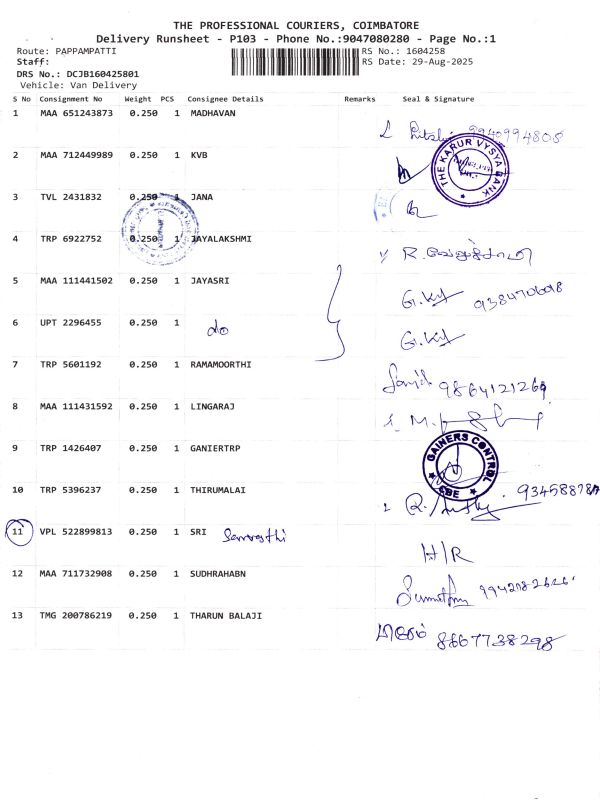 THE PROFESSIONAL COURIERS, COIMBATORE
Delivery Runsheet - P103 - Phone No.:9047080280 - Page No.:1
Route: PAPPAMPATTI RS No.: 1604258
Staff: RS Date: 29-Aug-2025
DRS No.: DCJB160425801
Vehicle: Van Delivery
S No Consignment No Weight PCS Consignee Details Remarks Seal & Signature
1 MAA 651243873 0.250 1 MADHAVAN 9940994808
2 MAA 712449989 0.250 1 KVB
THE KARUR VYSYA BANK
3 TVL 2431832 0.250 1 JANA
4 TRP 6922752 0.250 1 JAYALAKSHMI
5 MAA 111441502 0.250 1 JAYASRI G.Ky
6 UPT 2296455 0.250 1 do G.Ky
7 TRP 5601192 0.250 1 RAMAMOORTHI 9864121269
8 MAA 111431592 0.250 1 LINGARAJ
9 TRP 1426407 0.250 1 GANIERTRP
GAINERS CONTROL
CBE
10 TRP 5396237 0.250 1 THIRUMALAI
11 VPL 522899813 0.250 1 SRI H/R
12 MAA 711732908 0.250 1 SUDHRAHABN
13 TMG 200786219 0.250 1 THARUN BALAJI 8667738298